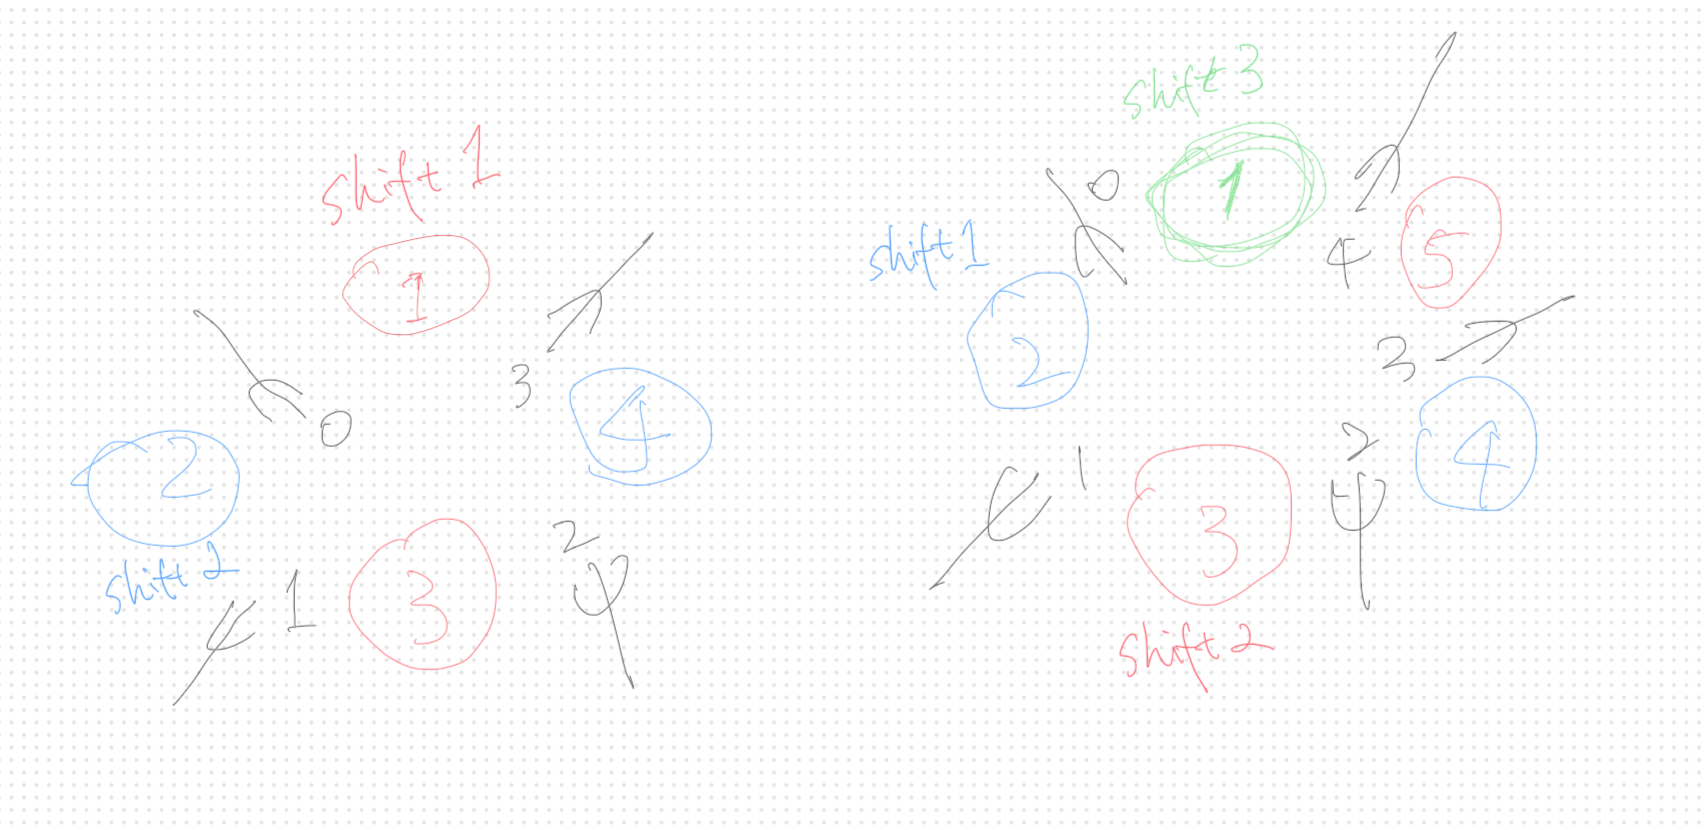 shift 1
1
3
4
0
2
shift 2
1
3
2
shift 3
0
1
4
5
shift 1
2
3
4
1
3
2
shift 2